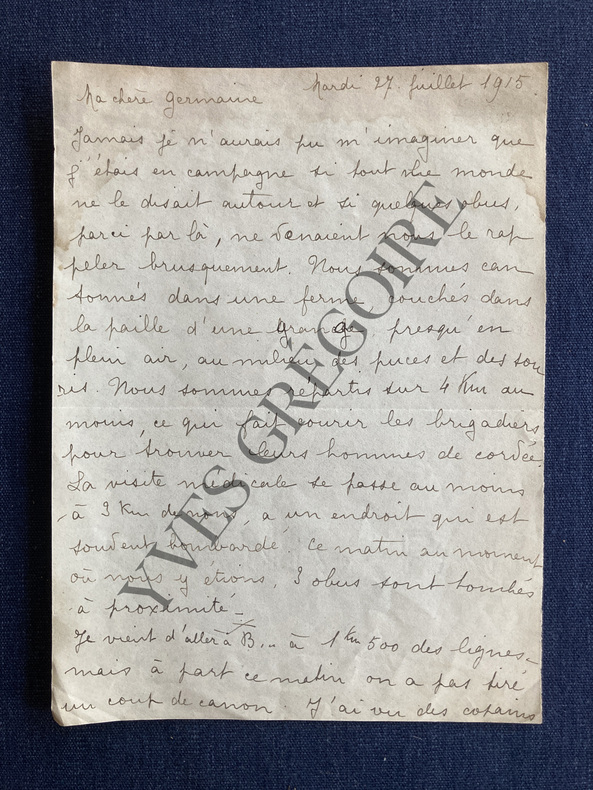 Mardi 27 juillet 1915.
Ma chère Germaine
Jamais je n'aurais pu m'imaginer que
j'étais en campagne si tout le monde
ne le disait autour et si quelques obus,
parci par là, ne venaient nous le rap
peler brusquement. Nous sommes can
tonnés dans une ferme, couchés dans
la paille d'une grange, presqu'en
plein air, au milieu des puces et des sou
ris. Nous sommes répartis sur 4 Km au
moins, ce qui fait courir les brigadiers
pour trouver leurs hommes de corvée.
La visite médicale se passe au moins
à 3 Km de nous, a un endroit qui est
souvent bombardé. Ce matin au moment
où nous y étions, 3 obus sont tombés
à proximité –
Je vient d'aller à B... à 1 Km 500 des lignes –
mais à part ce matin on a pas tiré
un coup de canon. J'ai vu des copains
YVES GREGOIRE